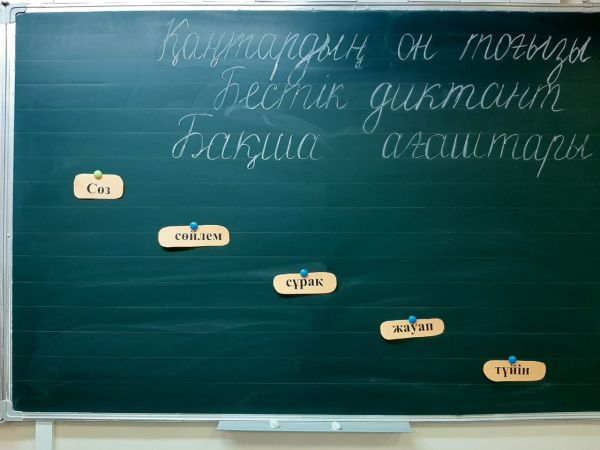 Қаңтардың он тоғызы
Бестік диктант
Бақша ағаштары
Сөз
сөйлем
сұрақ
жауап
түйін